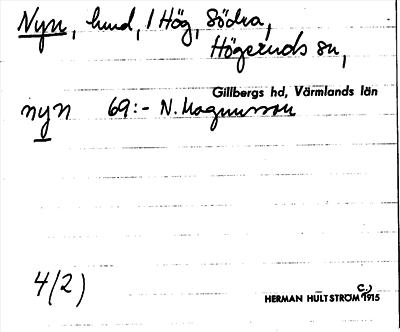 Nyn, hund, / Hög, Södra,
Högeruds sn,
Gillbergs hd, Värmlands län
nyn 69:- N. Magnusson
4/2)
C.)
HERMAN HULTSTRÖM 1915